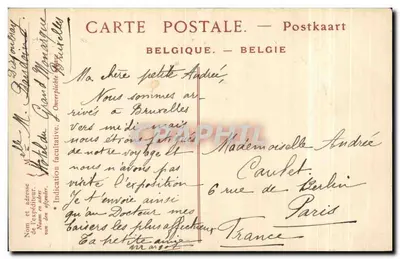 CARTE POSTALE. — Postkaart
BELGIQUE. — BELGIE
Ma chère petite Andrée,
Nous sommes ar-
rivés à Bruxelles
vers midi, mais
nous étions
de notre voyage et
nous n'avons pas
visité l'exposition
Je t'envoie ainsi
qu'au Docteur mes
baisers les plus affectueux
Ta petite amie
Margot
Mademoiselle Andrée
6 rue de Berlin
Paris
France
Nom et adresse
de l'expéditeur.
Naam en adres
van den afzender.
Hôtel du Grand Monarque
Bruxelles
• Indication facultative. • Onverplichte